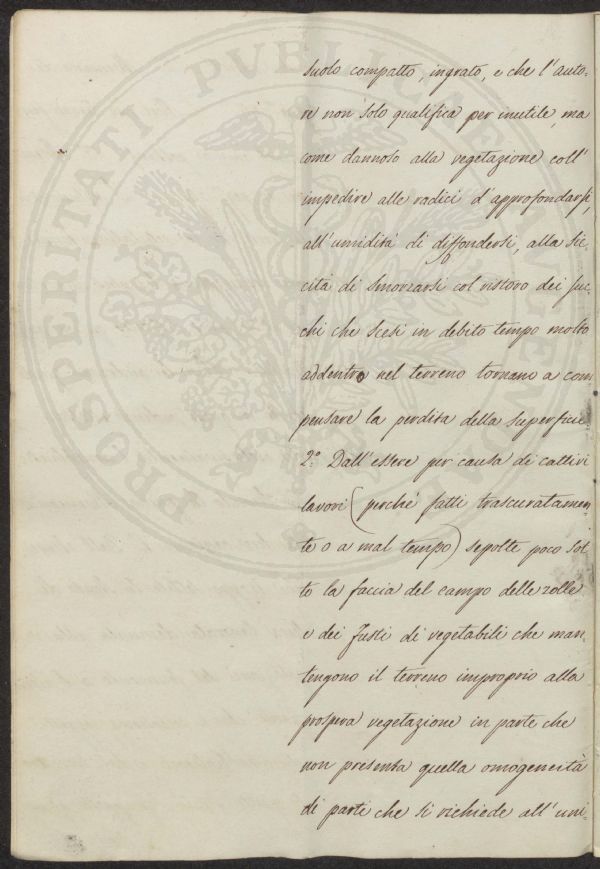 suolo compatto, ingrato, e che l'auto-
re non solo qualifica per inutile, ma
come dannoso alla vegetazione coll'
impedire alle radici d'approfondarsi,
all'umidità di diffondersi, alla sic-
cità di smorzarsi col ristoro dei suc-
chi che scesi in debito tempo molto
addentro nel terreno tornano a com
pensare la perdita della superficie
2.° Dall'essere per causa di cattivi
lavori (perché fatti trascuratamen
te o a mal tempo) sepolte poco sot
to la faccia del campo delle zolle
e dei fusti di vegetabili che man
tengono il terreno improprio alla
prospera vegetazione in parte che
non presenta quella omogeneità
di parti che si richiede all'uni-
PROSPERITATI PVBLICAE AVGENDAE